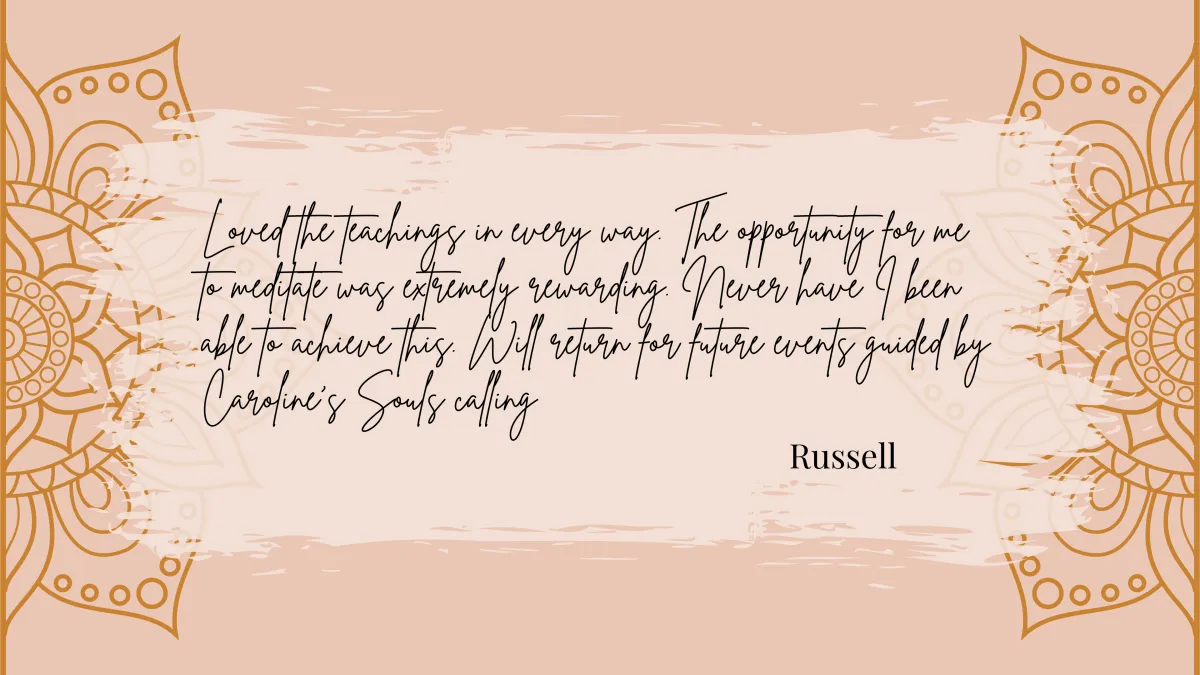 Loved the teachings in every way. The opportunity for me
to meditate was extremely rewarding. Never have I been
able to achieve this. Will return for future events guided by
Caroline's Souls calling
Russell